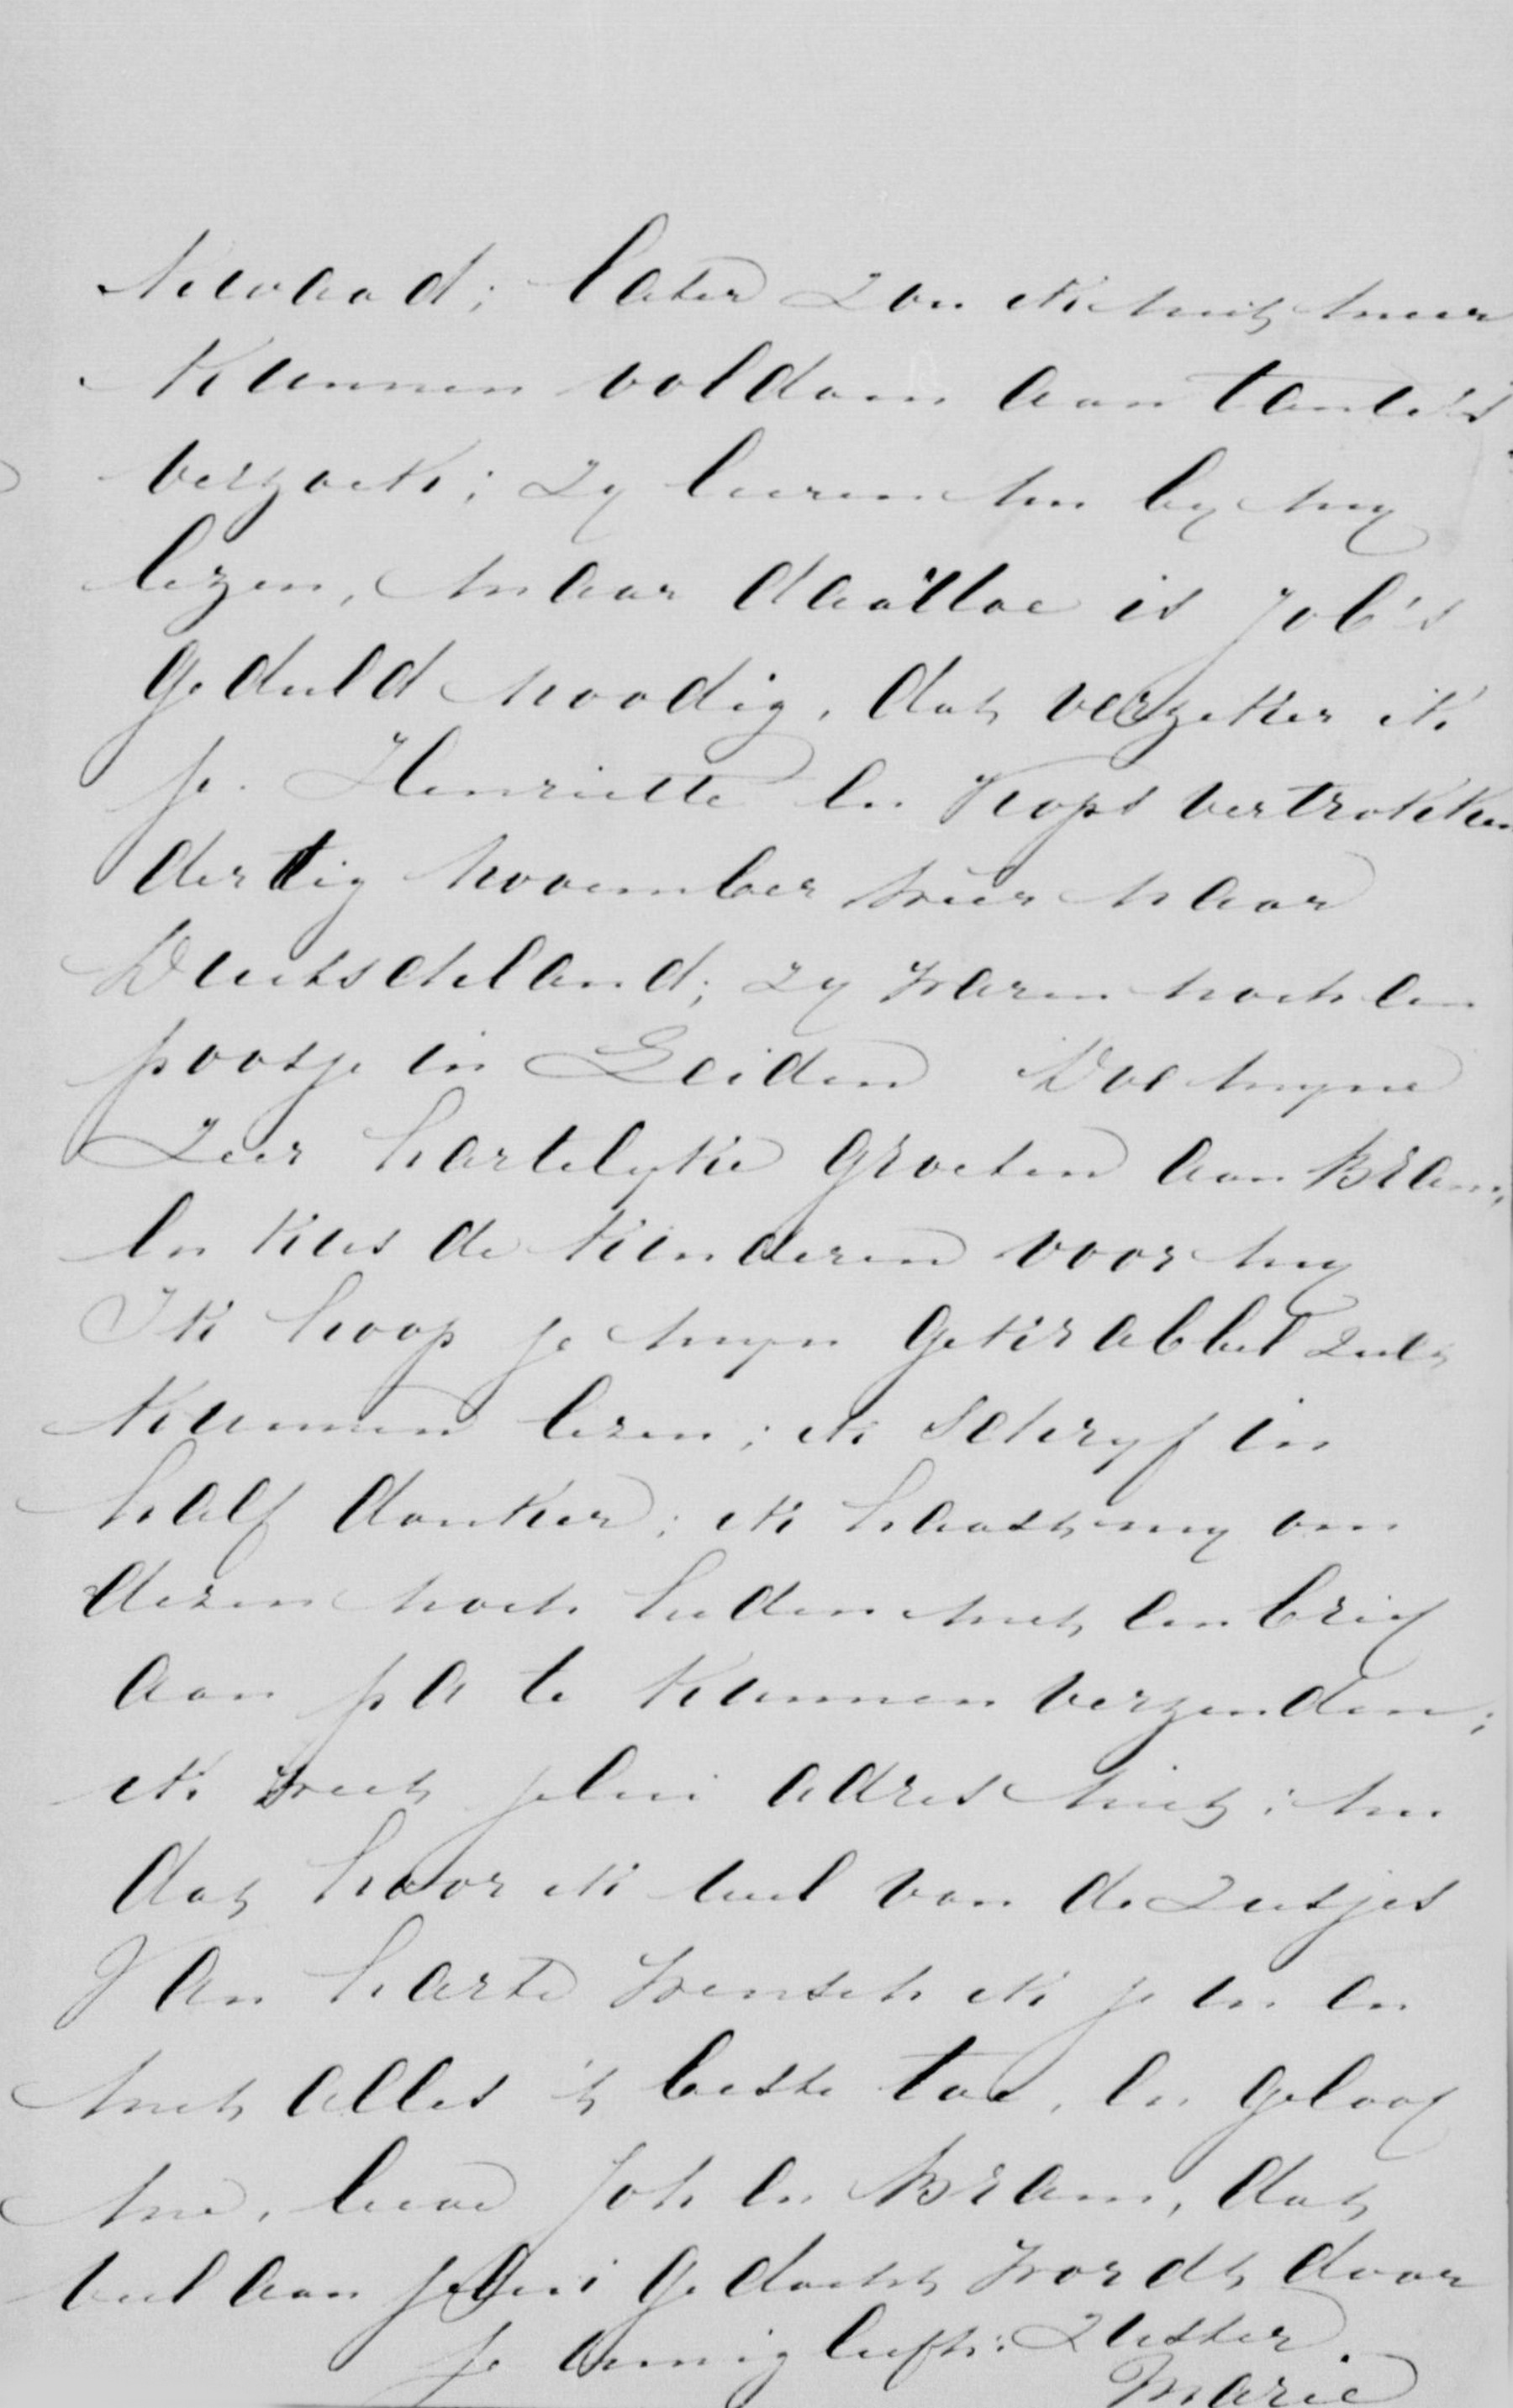 Kwaad; later zou ik niet meer
kunnen voldoen aan tante's
verzoek; zy leeren nu by my
lezen, maar daártoe is Job's
geduld noodig, dat verzeker ik
je. Henriette en Kops vertrokken
dertig November weer naar
Duitschland; zy waren noch een
poosje in Leiden Doe myne
zeer hartelyke groeten aan Bram,
en kus de kinderen voor my
Ik hoop je myn gekrabbel zult
kunnen lezen; ik schryf in
half donker; ik haast my om
dezen noch heden met een brief
aan pa te kunnen verzenden;
ik weet jelui adres niet; nu
dat hoor ik wel van de zusjes
Van harte wensch ik je in en
met alles 't beste toe, en geloof
me, lieve Joh en Bram, dat
veel aan jelui gedacht wordt door
je innig liefh: Zuster
Marie